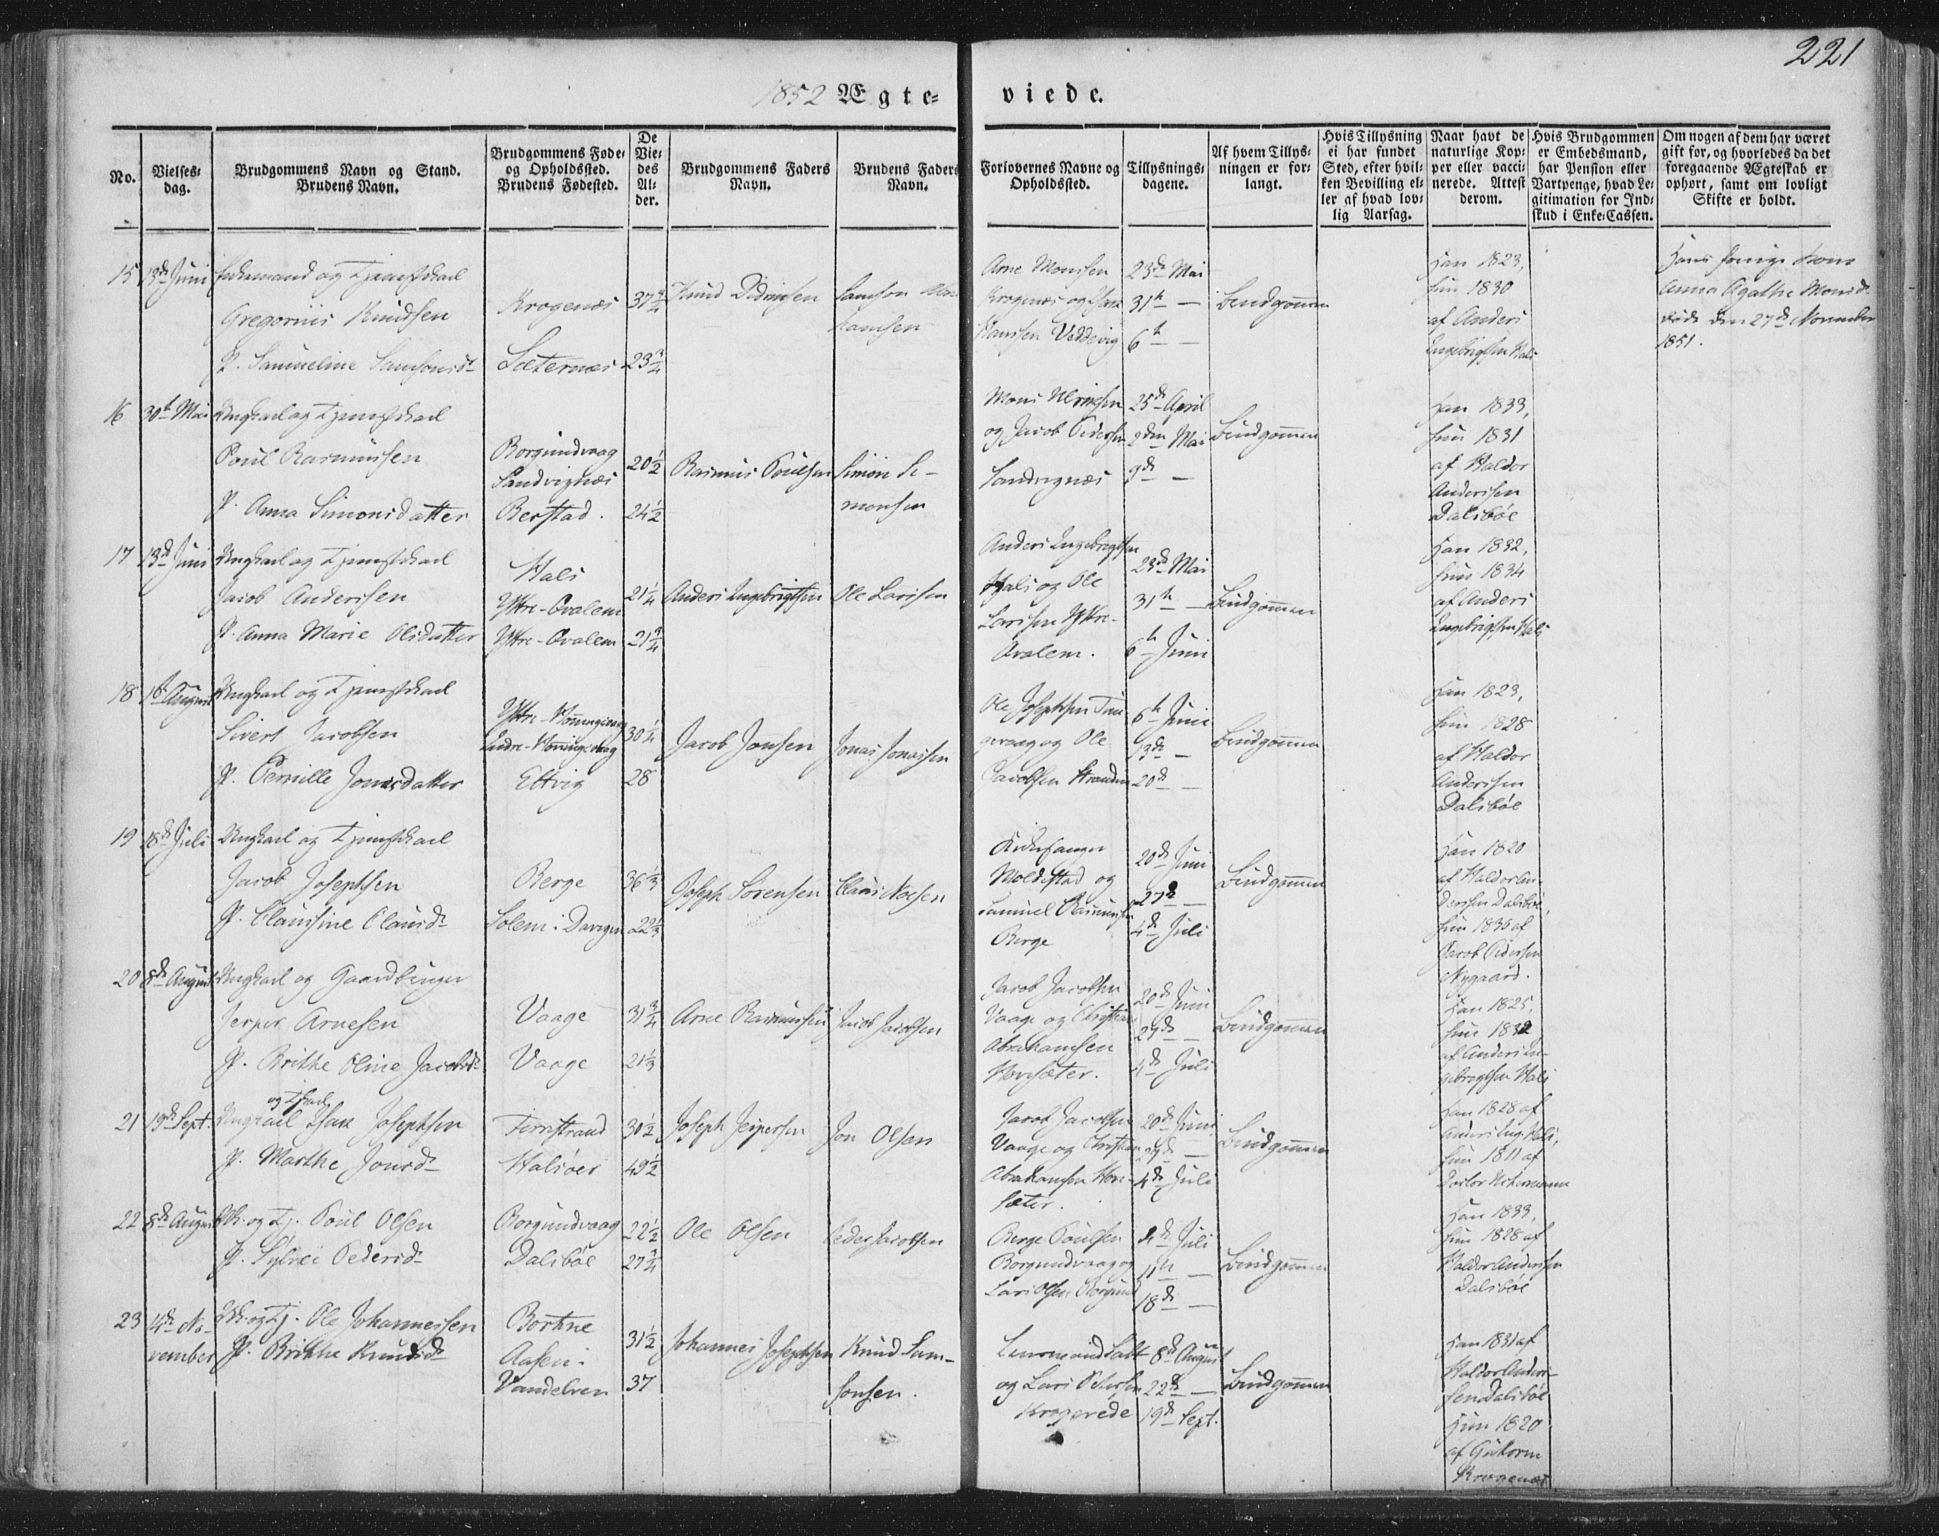 221
1852 Ægte-
viede.
No.
Vielses-
dag.
Brudgommens Navn og Stand.
Brudens Navn.
Brudgommens Føde-
og Opholdssted.
Brudens Fødested.
De
Vie-
des
Al-
der.
Brudgommens Faders
Navn.
Brudens Faders
Navn.
Forlovernes Navne og
Opholdssted.
Tillysnings-
dagene.
Af hvem Tillys-
ningen er for-
langt.
Hvis Tillysning
ei har fundet
Sted, efter hvil-
ken Bevilling el-
ler af hvad lov-
lig Aarsag.
Naar havt de
naturlige Kop-
per eller vacci-
nerede. Attest
derom.
Hvis Brudgommen
er Embedsmand,
har Pension eller
Vartpenge, hvad Le-
gitimation for Ind-
skud i Enke-Cassen.
Om nogen af dem har været
gift før, og hvorledes da det
foregaaende Ægteskab er
ophørt, samt om lovligt
Skifte er holdt.
15 13de Juni Enkemand og Tjenestekarl
Gregorius Knudsen
P. Samueline Samsonsd.
Krogenæs
Sæternæs
37 3/4
23 3/4
Knud Didriksen
Samson
Arne Monsen
Krogenæs og
Hanssen Veddevig
23de Mai
31te —
6te —
Brudgommen
Han 1823,
Hun 1830
af Anders
Engebrigtsen Hals
Hans forrige Kone
Anna Agathe Monsd.
døde den 27de November
1851.
16 30te Mai Ungkarl og Tjenestekarl
Poul Rasmussen
P. Anna Simonsdatter
Borgundvaag
Sandvignæs
Berstad.
20 1/2
24 1/2
Rasmus Poulsen
Simon Si-
monsen
Mons Ulrichsen
og Jacob Pedersen
Sandvignæs
25de April
2den Mai
9de —
Brudgommen
Han 1833,
Hun 1831
af Haldor
Andersen
Dalsbøe
17 13de Juni Ungkarl og Tjenestekarl
Jacob Andersen
P. Anna Marie Olsdatter
Hals
Yttre-Qvalem
Yttre-Qvalem
21 1/4
21 3/4
Anders Engebrigtsen
Ole Larssen
Anders Engebrigtsen
Hals og Ole
Larssen Yttre-
Qvalem.
23de Mai
31te —
6te Juni
Brudgommen
Han 1832,
Hun 1834
af Anders
Engebrigtsen Hals
18 1ste August Ungkarl og Tjenestekarl
Sivert Jacobsen
P. Pernille Jonasdatter
Ettvig
30 1/4
28
Jacob Jonsen
Jonas Jonassen
Ole Josephsen
og Ole
Jacobsen Stranden
6te Juni
13de —
20de —
Brudgommen
Han 1823,
Hun 1828
af Haldor
Andersen
Dalsbøe
19 18de Juli Ungkarl og Tjenestekarl
Jacob Josephsen
P. Claussine Clausd.
Berge
Solem
36 1/3
22 1/3
Joseph Sørensen
Claus Nilsen
Kirkesanger
Moldestad og
Samuel Rasmussen
Berge
20de Juni
27de —
4de Juli
Brudgommen
Han 1820
af Haldor An-
dersen Dalsbøe,
Hun 1830 af
Jacob Pedersen
Nygaard.
20 8de August Ungkarl og Gaardbruger
Jesper Arnesen
P. Brithe Oline Jacobsd.
Vaage
Vaage
31 3/4
21 1/3
Arne Rasmussen
Jacob Jacobsen
Jacob Jacobsen
Vaage og Christian
Abrahamsen
Hovsæter.
20de Juni
27de —
4de Juli
Brudgommen
Han 1825,
Hun 1832
af Anders En-
gebrigtsen Hals
21 19de Sept. Ungkarl Isak Josephsen
P. Marthe Jonsd.
Halsøer
30 1/2
49 1/2
Joseph Jespersen
Jon Olsen
Jacob Jacobsen
Vaage og Christian
Abrahamsen Hov-
sæter.
20de Juni
27de —
4de Juli
Brudgommen
Han 1828 af
Anders Eng. Hals,
Hun 1811 af
22 8de August Uk. og Tj. Poul Olsen
P. Sylvei Pedersd.
Borgundvaag
Dalsbøe
22 1/2
27 3/4
Ole Olsen
Peder Jacobsen
Berge Poulsen
Borgundvaag og
Lars Olsen Borgund
4de Juli
11te —
18de —
Brudgommen
Han 1833,
Hun 1828 af
Haldor Andersen
Dalsbøe
23 14de No-
vember
Uk. og Tj. Ole Johannessen
P. Brithe Knudsd.
Bortne
Aasen.
Vandelven
31 1/2
37
Johannes Josephsen
Knud Sam-
sonsen.
Lensmand Salt
og Lars Petersen
8de August
22de —
19de Sept.
Brudgommen
Han 1831 af
Haldor Ander-
sen Dalsbøe
Hun 1820
af Guttorm
Krogenæs